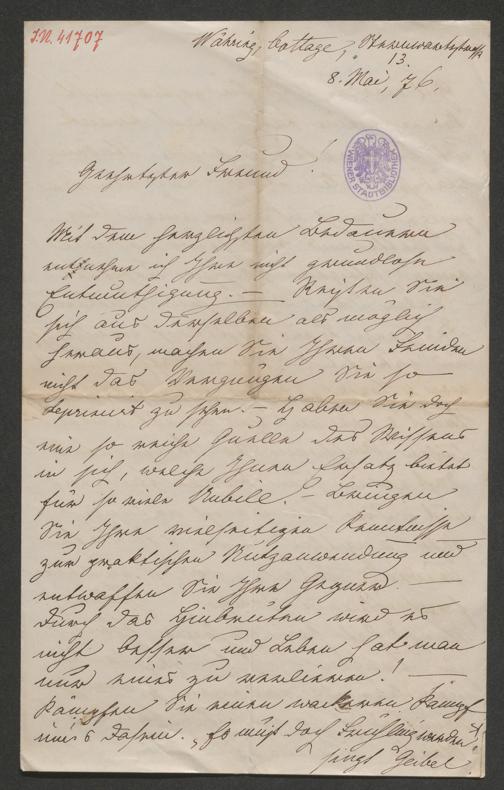 I.N. 41707
Währing, Cottage, Sternwartestrasse
13.
8. Mai, 76.
WIENER STADTBIBLIOTHEK
Geehrtester Freund!
Mit dem herzlichsten Bedauern
entnehme ich Ihre nicht grundlose
Entmuthigung. — Reißen Sie
sich aus derselben als möglich
heraus, machen Sie Ihren Feinden
nicht das Vergnügen Sie so
deprimirt zu sehen. — Haben Sie doch
eine so reiche Quelle des Wissens
in sich, welche Ihnen Ersatz bietet
für so viele Unbill. — Bringen
Sie Ihre vielseitigen Kenntnisse
zur praktischen Nutzanwendung und
entwaffnen Sie Ihre Gegner. —
Durch das Hinbrüten wird es
nicht besser und Leben hat man
nur eines zu verlieren! —
Kämpfen Sie einen wackeren Kampf
um's Dasein. „Es muß doch Frühling werden"
singt Geibel.